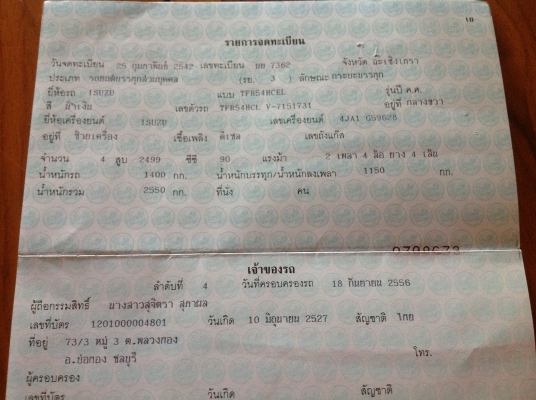 10
รายการจดทะเบียน
วันจดทะเบียน 25 กุมภาพันธ์ 2542 เลขทะเบียน 7362 จังหวัด ฉะเชิงเทรา
ประเภท รถยนต์บรรทุกส่วนบุคคล (รย. 3 ) ลักษณะ กระบะบรรทุก
ยี่ห้อรถ ISUZU แบบ TFR54HCEL รุ่นปี ค.ศ.
สี ฟ้าเงิน เลขตัวรถ V-7151731 อยู่ที่ กลางขวา
ยี่ห้อเครื่องยนต์ ISUZU เลขเครื่องยนต์ 4JA1 G59628
อยู่ที่ ซ้ายเครื่อง เชื้อเพลิง ดีเซล เลขถังแก๊ส
จำนวน 4 สูบ 2499 ซีซี 90 แรงม้า 2 เพลา 4 ล้อ ยาง 4 เส้น
น้ำหนักรถ 1400 กก. น้ำหนักบรรทุก/น้ำหนักลงเพลา 1150 กก.
น้ำหนักรวม 2550 กก. ที่นั่ง คน
เจ้าของรถ
ลำดับที่ 4 วันที่ครอบครองรถ 18 กันยายน 2556
ผู้ถือกรรมสิทธิ์ นางสาวสุจิตวา สุภาผล
เลขที่บัตร 1201000004801 วันเกิด 10 มิถุนายน 2527 สัญชาติ ไทย
ที่อยู่ 73/3 หมู่ 3 ต.พลวงทอง
อ.บ่อทอง ชลบุรี โทร.
ผู้ครอบครอง
เลขที่บัตร วันเกิด สัญชาติ